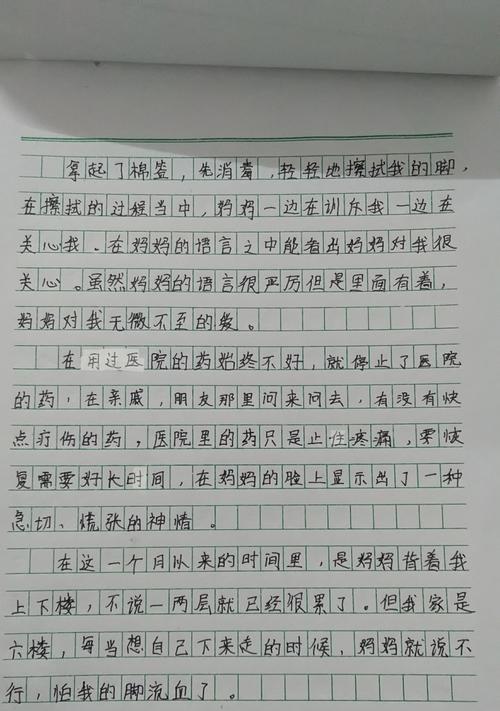 拿起了棉签，先消毒，轻轻地擦拭我的脚，
在擦拭的过程当中，妈妈一边在训斥我一边在
关心我．在妈妈的语言之中能看出妈妈对我很
关心。虽然妈妈的语言很严厉但是里面有着，
妈妈对我无微不至的爱。
在用过医院的药始终不好，就停止了医院
的药，在亲戚，朋友那里问来问去，有没有快
点疗伤的药，医院里的药只是止住疼痛，要恢
复需要好长时间，在妈妈的脸上显示出了一种
急切、慌张的神情。
在这一个月以来的时间里，是妈妈背着我
上下楼，不说一两层就已经很累了。但我家是
六楼，每当想自己下来走的时候，妈妈就说不
行，怕我的脚流血了。